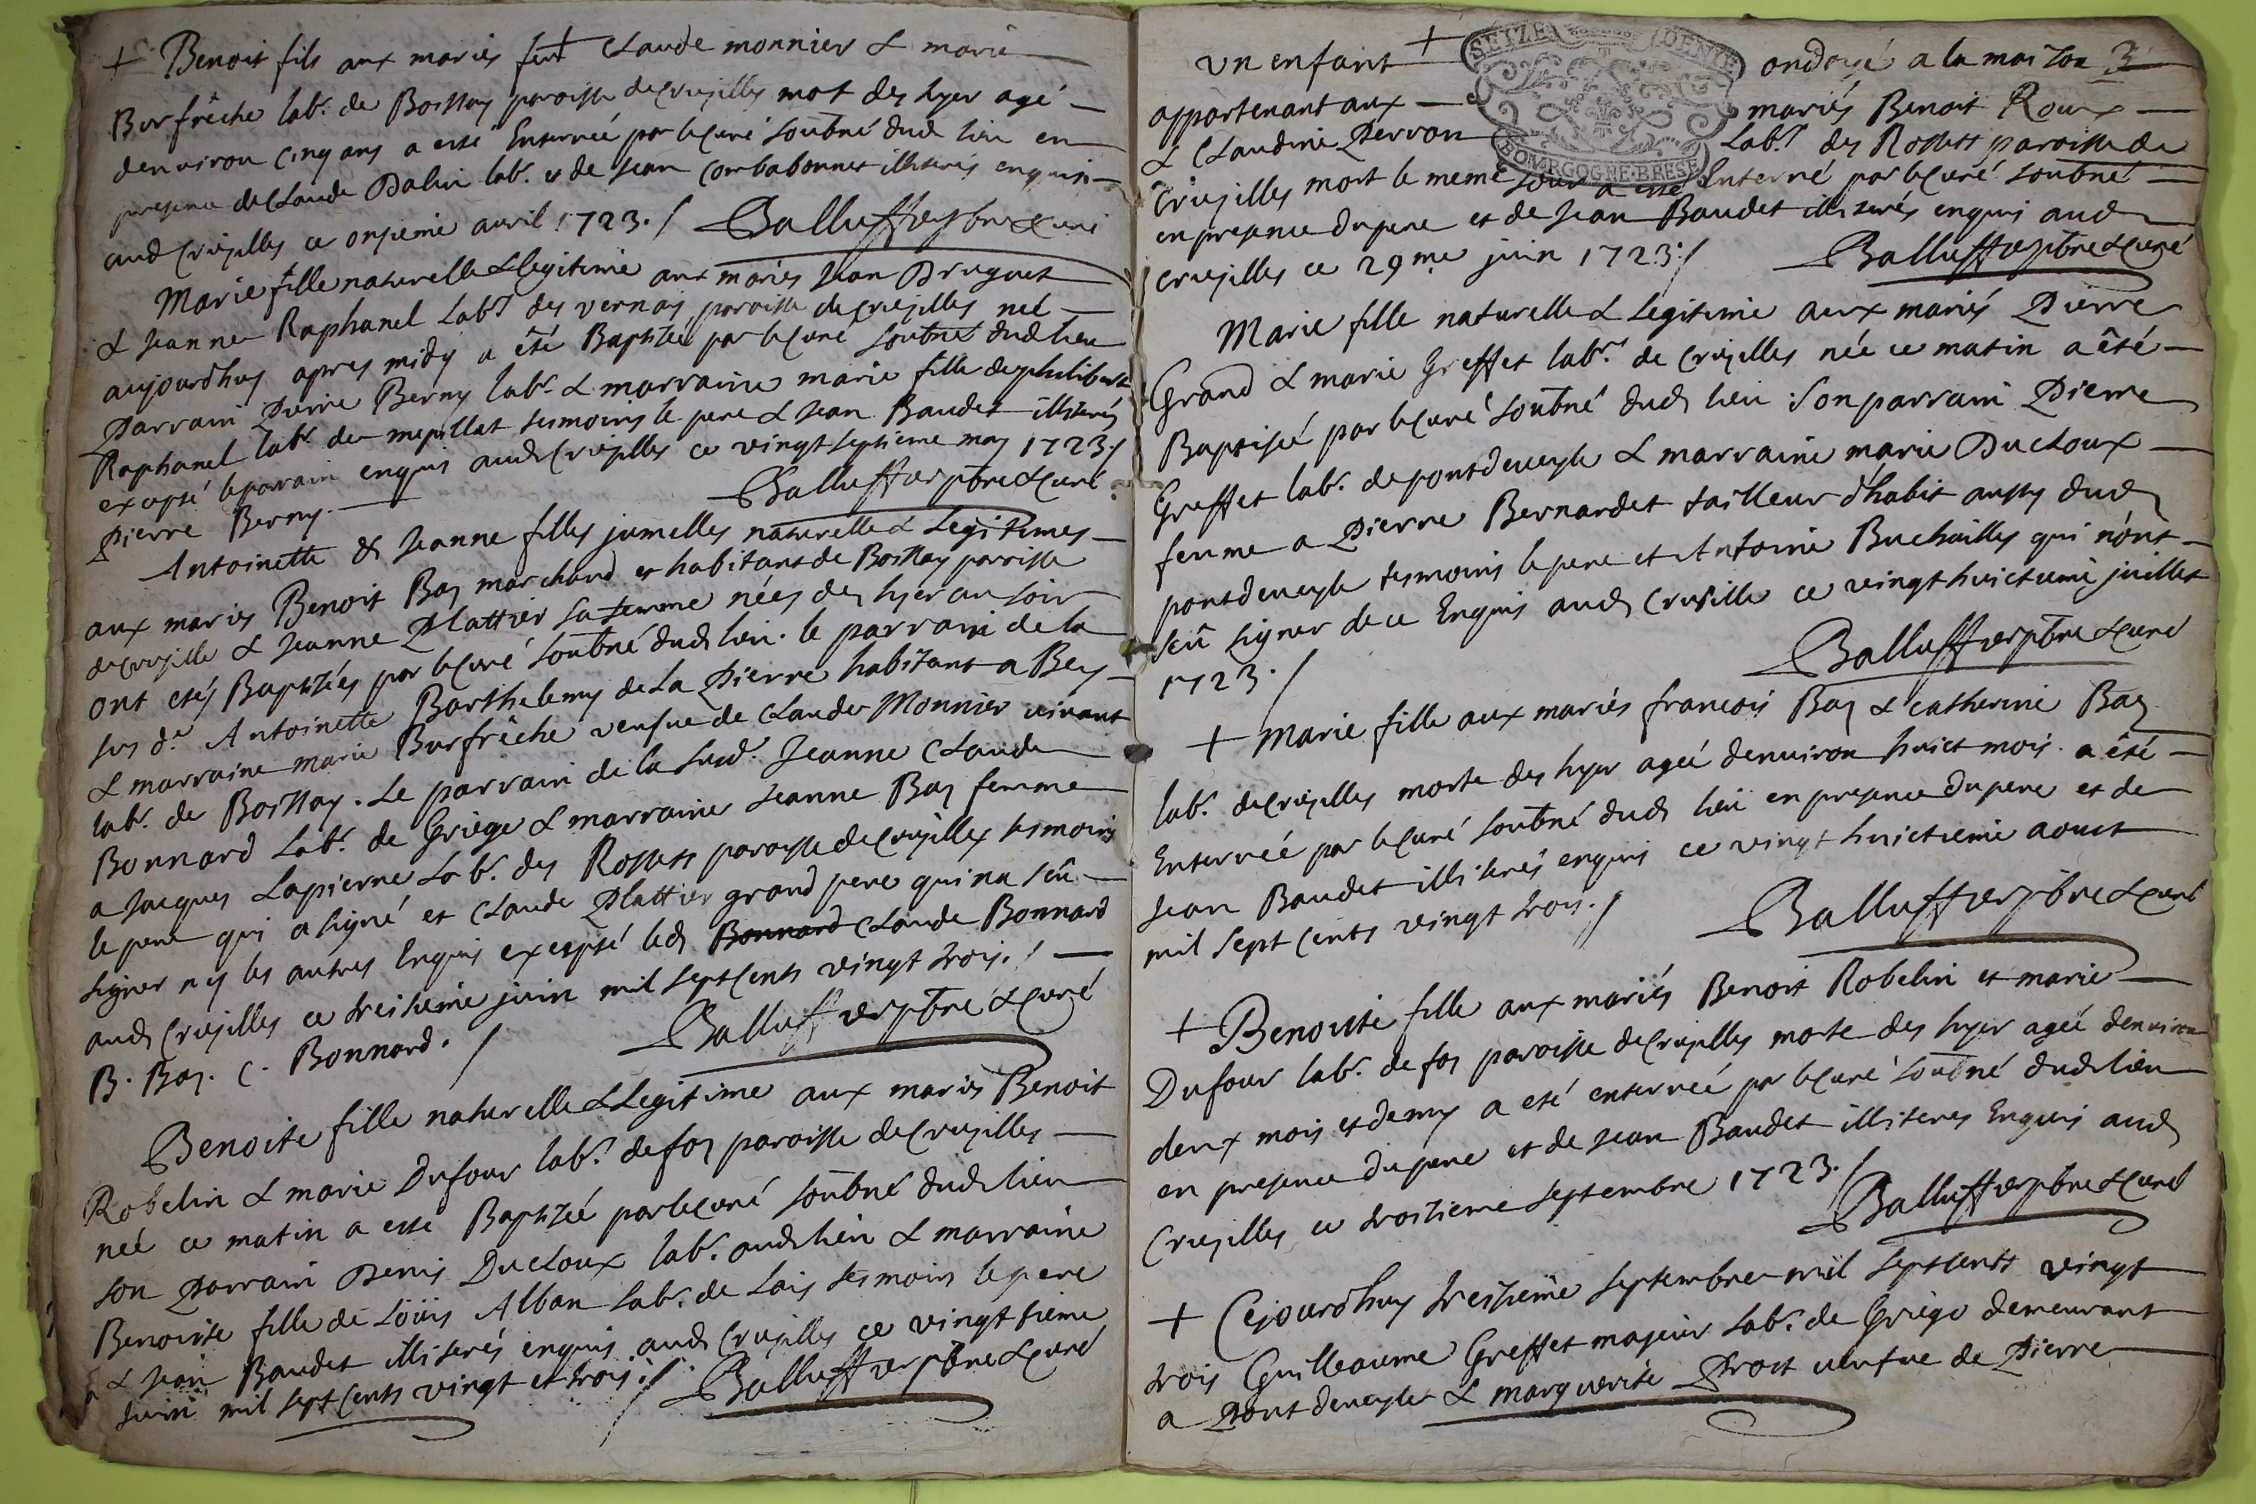 + Benoit fils aux mariés feu + Claude monnier & marie
Burfrêche labr. de Boissay paroisse de Crusilles mort des hyer agé
denviron cinq ans a esté Enterréé par le Curé soubné dud lieu en
presence de Claude Dalin labr. & de Jean Combabonnet illiterés enquis
aud Crusilles ce onzieme avril 1723./ Balluffier pbre & curé
Marie fille naturelle & legitime aux mariés Jean Druguet
& Jeanne Raphanel Labr des vernay, paroisse de Crusilles neé
aujourdhuy apres midy a été Baptiseé par le Curé soubné dud lieu
Parrain Pierre Berny labr. & marraine marie fille de philibert
Raphanel labr de mepillat tesmoins le pere & Jean Baudet illiterés
excepté le parrain enquis aud Crusilles ce vingt septieme may 1723/
Pierre Berny. Balluffier pbre & curé
Antoinette & Jeanne filles jumelles naturelle & Legitimes
aux mariés Benoit Bay marchand et habitant de Boissay paroisse
de Crusille & Jeanne Plattier sa femme néés des hyer au soir
ont etéś Baptiséés par le Curé soubné dud lieu. le parrain de la
sus de. Antoinette Barthelemy de La Pierre habitant a Bey
& marraine marie Burfrêche veufue de Claude Monnier vivant
labr. de Boissay. Le parrain de la susd. Jeanne Claude
Bonnard Labr. de Griége & marraine Jeanne Bay femme
a Jacques Lapierre Labr. des Rossets paroisse de Crusilles tesmoins
le pere qui a signé et Claude Plattier grand pere qui na sçû
signer ny les autres Enquis excepté led Bonnard Claude Bonnard
aud Crusilles ce treisieme juin mil sept Cents vingt trois./
B. Bay. C. Bonnard. / Balluffier pbre & Curé
Benoite fille naturelle & Legitime aux mariés Benoit
Robelin & marie Dufour labr. de foy paroisse de Crusilles
neé ce matin a esté Baptiseé par le Curé soubné dud lieu
son Parrain Denis Ducloux labr. aud lieu & marraine
Benoiste fille de Löüis Alban labr. de Lais tesmoins le pere
& Jean Baudet illiterés enquis aud Crusilles ce vingtsieme
Juin mil sept Cents vingt et trois./ Balluffier pbre & curé
un enfant + ondoyé a la maison 3
SEIZE DENIE
BOURGOGNE · BRESSE
appartenant aux mariés Benoit Roux
& Claudine Perron Labr. des Rossets paroisse de
Crusilles mort le meme jour a esté Enterré par le Curé soubné
en presence du pere et de Jean Baudet illiterés enquis aud
Crusilles ce 29me juin 1723./ Balluffier pbre & Curé
Marie fille naturelle & Legitime aux mariés Pierre
Grand & marie Greffet labr. de Crusilles née ce matin a êté
Baptiseé par le Curé soubné dud lieu son parrain Pierre
Greffet labr. de pontdeveyle & marraine marie Ducloux
femme a Pierre Bernardet tailleur dhabit aussy dud
pontdeveyle tesmoins le pere et Antoine Buchailles qui n'ont
sçû signer de ce Enquis aud Crusille ce vingt huictieme juillet
1723./ Balluffier pbre & curé
+ Marie fille aux mariés françois Bay & catherine Bay
labr. de Crusilles morte des hyer ageé denviron huict mois a êté
Enterréé par le Curé soubné dud lieu en presence du pere et de
Jean Baudet illiterés enquis ce vingt huictieme aoust
mil sept Cents vingt trois./ Balluffier pbre & Curé
+ Benoiste fille aux mariés Benoit Robelin et marie
Dufour labr. de foy paroisse de Crusilles morte des hyer ageé denviron
deux mois et demy a eté enterréé par le Curé soubné dud lieu
en presence du pere et de Jean Baudet illiteres Enquis aud
Crusilles ce troisieme septembre 1723./ Balluffier pbre & Curé
+ Cejourdhuy treisieme septembre mil sept cents vingt
trois Guilleaume Greffet majeur labr. de Griége demeurant
a Pont deveyle & marguerite Prost veufue de Pierre